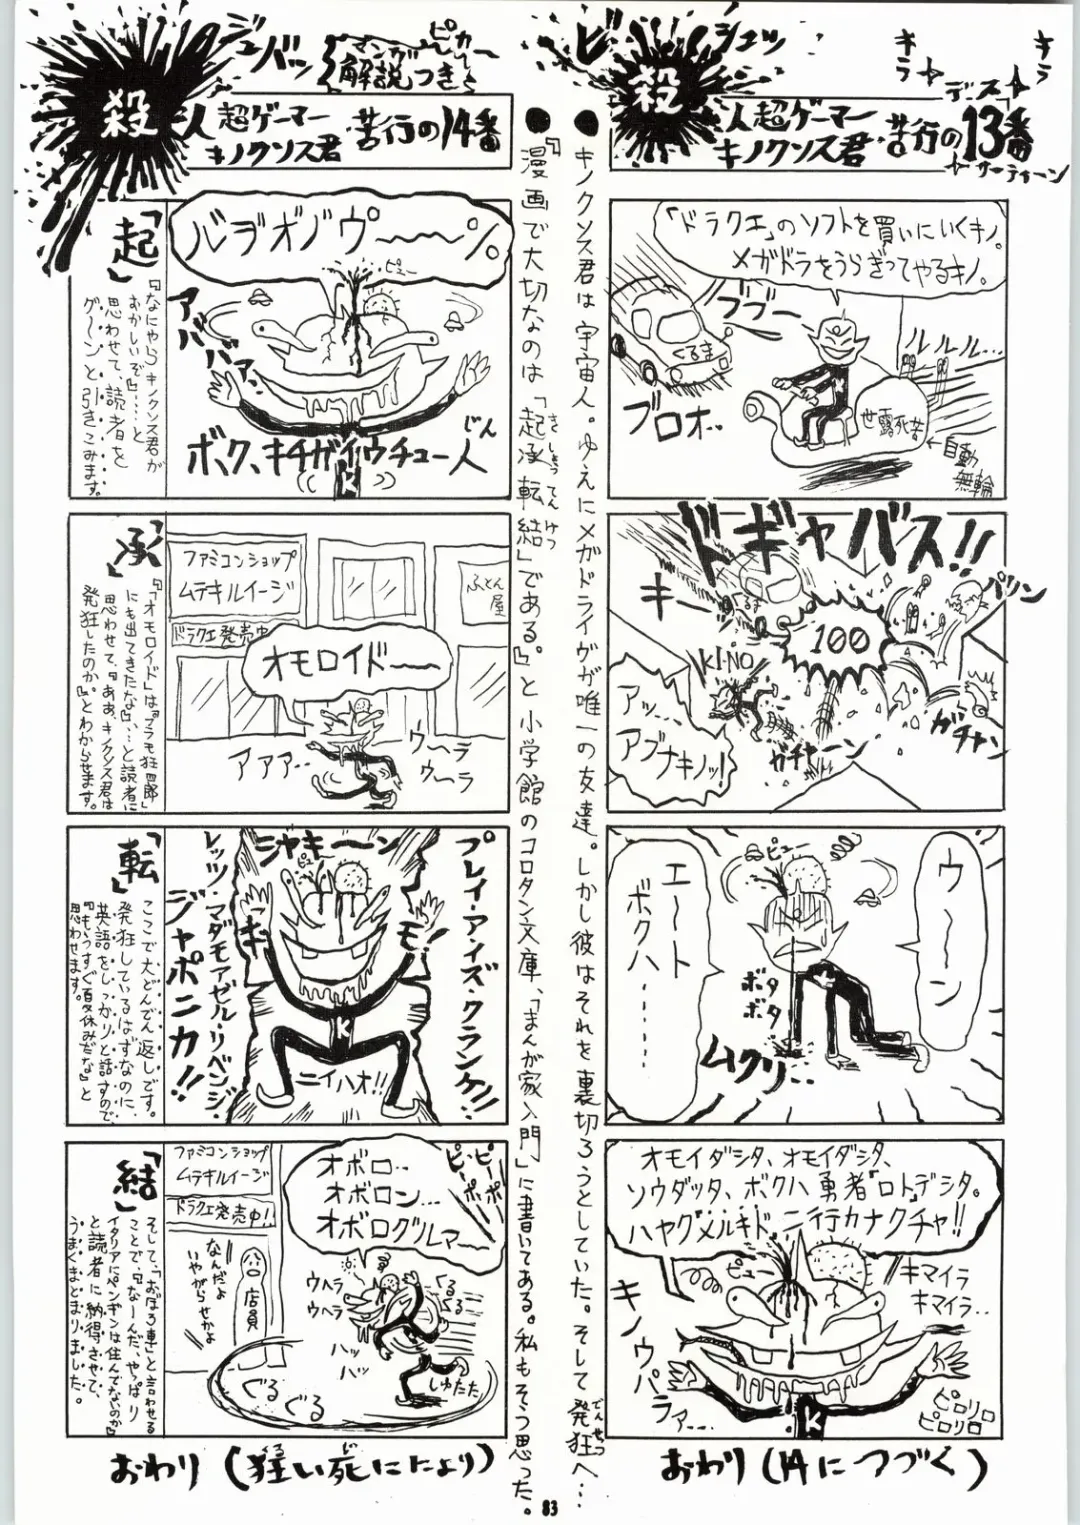 ビシュッ
キラ
キラ
デース
殺人超ゲーマー
キノクンス君 苦行の13番
サーティーン
「ドラクエ」のソフトを買いにいくキノ。
メガドラをうらぎってやるキノ。
ブブー
くるま
ルルル…
ブロオ..
世露死苦
←自動
無輪
ドギャバス!!
キー
くるま
100
パリン
KI-NO
アッ…
アブナキノッ!
ガチャーン
ガチャン
ピュー
ウ〜ン
エ〜ト
ボクハ………
ボタ
ボタ
ムクリ..
オモイダシタ、オモイダシタ、
ソウダッタ、ボクハ勇者「ロト」デシタ。
ハヤク「メルキド」ニ行カナクチャ!!
ピュー
キマイラ
キマイラ..
キノウパラァ…
K
ピロリロ
ピロリロ
おわり(14につづく)
●キノクンス君は宇宙人。ゆえにメガドライヴが唯一の友達。しかし彼はそれを裏切ろうとしていた。そして発狂へ…
でんせつ
●『漫画で大切なのは「起承転結」である。』と小学館のコロタン文庫、「まんが家入門」に書いてある。私もそう思った。
きしょうてんけつ
ジュバッ
マンガ
解説つき
ピカー
殺人超ゲーマー
キノクンス君 苦行の14番
「起」
『なにやらキノクンス君が
おかしいぞ』……と
思わせて、読者を
グ〜ンと引きこみます。
バヂオノヴ〜〜〜%
ピュー
アバババァ、
ボク、キチガイウチュー人
じん
K
「承」
『「オモロイド」は『プラモ狂四郎』
にも出てきたな』…と読者に
思わせて、『ああ、キノクンス君は
発狂したのか。』とわからせます。
ファミコンショップ
ムテキルイージ
ドラクエ発売中
ふとん屋
オモロイド〜〜
アァァ..
ウ〜ラ
ウ〜ラ
「転」
ここで、大どんでん返しです。
発狂しているはずなのに、
英語をしっかりと話すので、
『もうすぐ夏休みだな』と
思わせます。
シャキーン
プレイ・アンズ・クランケ!!
レッツ・マダモアゼル・リベンジ・
ジャポニカ!!
ピュ
キ
モ
K
ニイハオ!!
「結」
そして、「おぼろ車」と言わせる
ことで、『なーんだ、やっぱり
イタリアにペンギンは住んでないのか』
と読者に納得させて、
うまくまとまりました。
ファミコンショップ
ムテキルイージ
ドラクエ発売中!
オボロ..
オボロン…
オボログルマ〜
ピ、ピ
ポ、ポ
なんだよ
いやがらせかよ
店員
ウヘラ
ウヘラ
ぐるぐる
ハッ
ハッ
しゅたた
ぐる
ぐる
おわり(狂い死ににより)
83